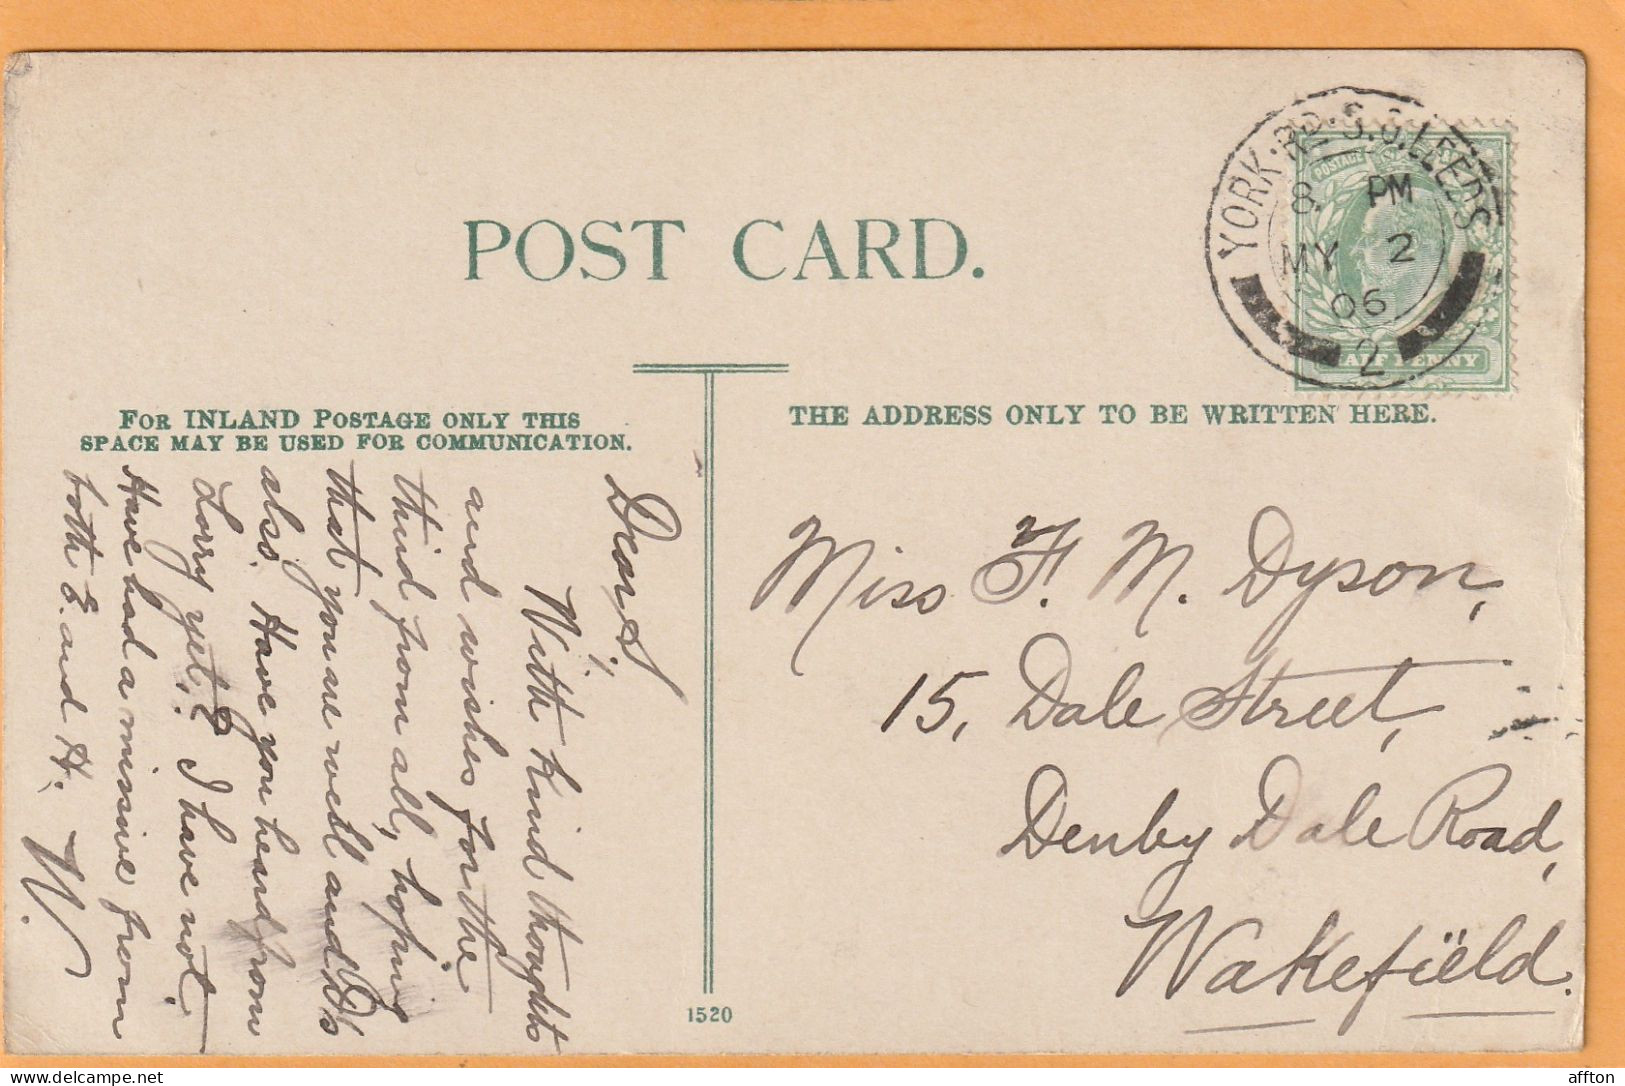 POST CARD.
FOR INLAND POSTAGE ONLY THIS
SPACE MAY BE USED FOR COMMUNICATION.
THE ADDRESS ONLY TO BE WRITTEN HERE.
YORK.RD.S.O.LEEDS
8 PM
MY 2
06
2
POSTAGE
HALF PENNY
Dear S,
With kind thoughts
and wishes for the
third from all, hoping
that you are well and D's
also. Have you heard from
Lorry yet? I have not.
Have had a missive from
both E. and H. W.
Miss F. M. Dyson,
15, Dale Street,
Denby Dale Road,
Wakefield.
1520
delcampe.net
affton